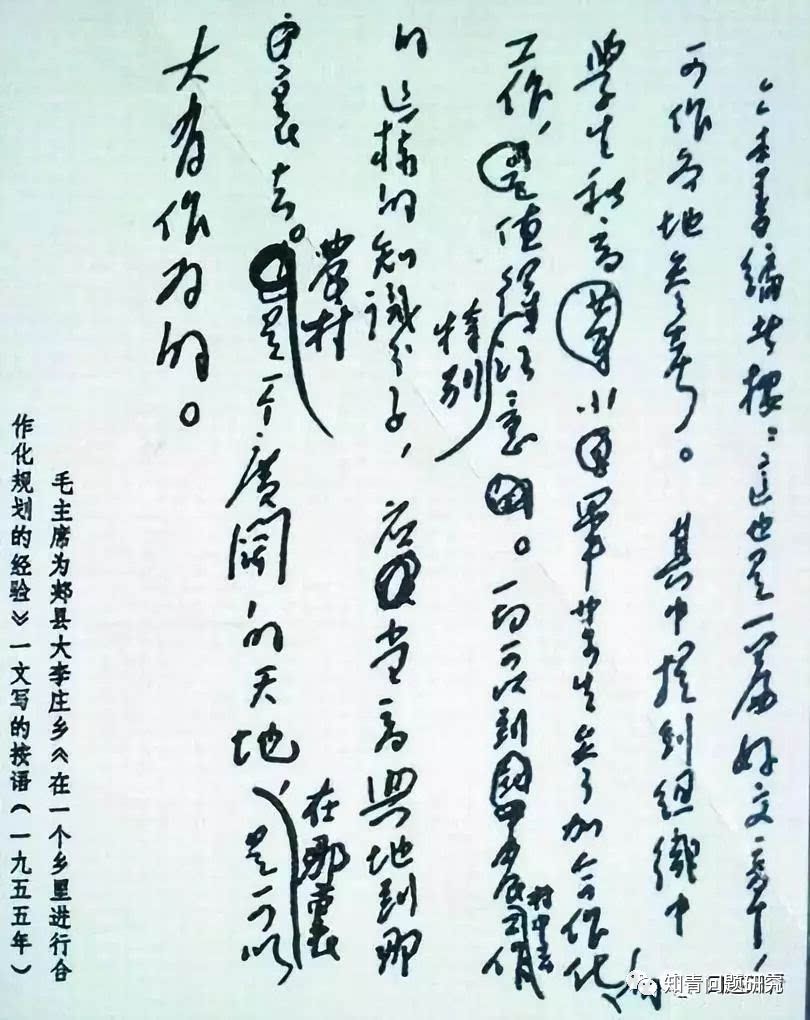 本書编者按：這也是一篇好文章，
可作各地参考。其中提到组織中
學生和高小毕業生参加合作化的
工作，值得特别注意。一切可以到農村中去工作
的這樣的知識分子，应當高興地到那
裏去。農村是一个廣闊的天地，在那裏是可以
大有作为的。
毛主席为郏县大李庄乡《在一个乡里进行合
作化规划的经验》一文写的按语（一九五五年）
知青问题研究